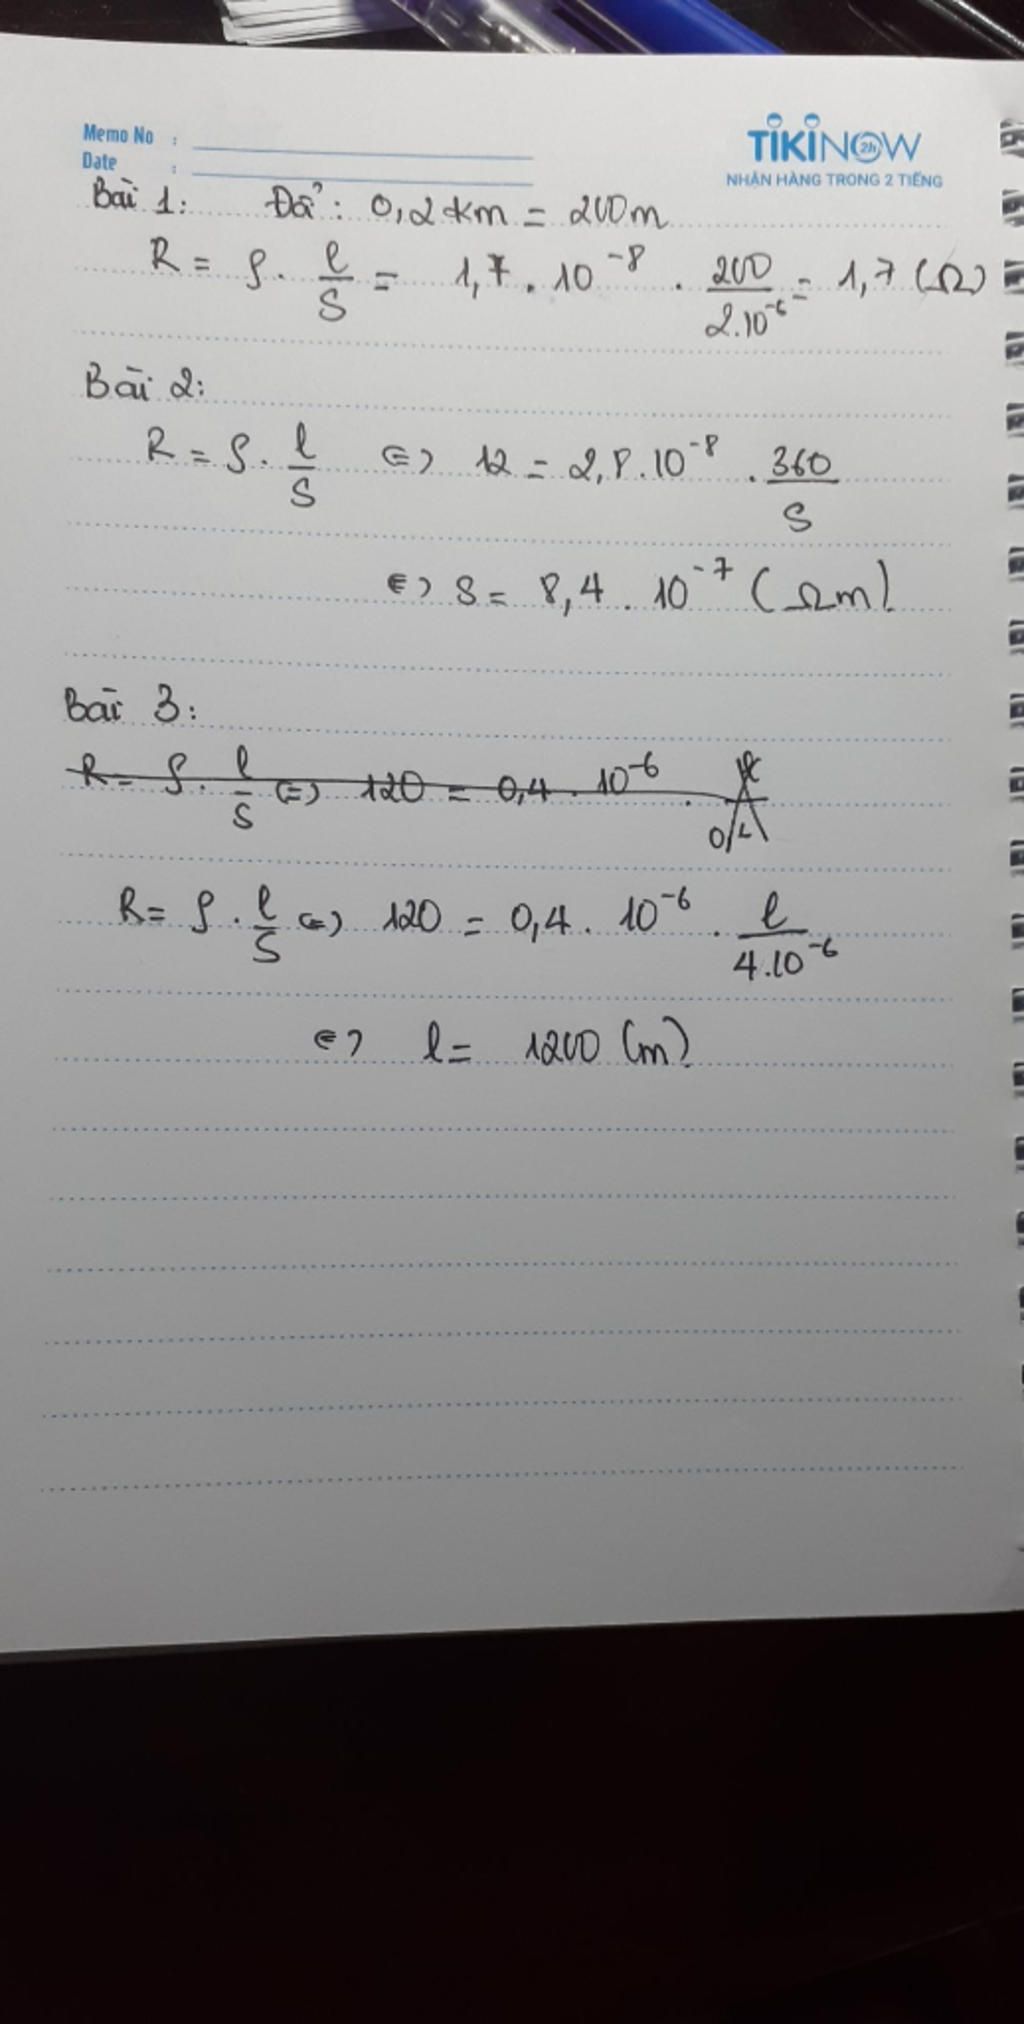 Memo No :
Date :
TIKINOW 2h
NHẬN HÀNG TRONG 2 TIẾNG
Bài 1: Đổi: 0,2 km = 200m
R = ρ . l/S = 1,7 . 10⁻⁸ . 200/2.10⁻⁶ = 1,7 (Ω)
Bài 2:
R = ρ . l/S ⇔ 12 = 2,8.10⁻⁸ . 360/S
⇔ S = 8,4 . 10⁻⁷ (Ωm)
Bài 3:
R = ρ . l/S ⇔ 120 = 0,4 . 10⁻⁶ .
R = ρ . l/S ⇔ 120 = 0,4 . 10⁻⁶ . l/4.10⁻⁶
⇔ l = 1200 (m)